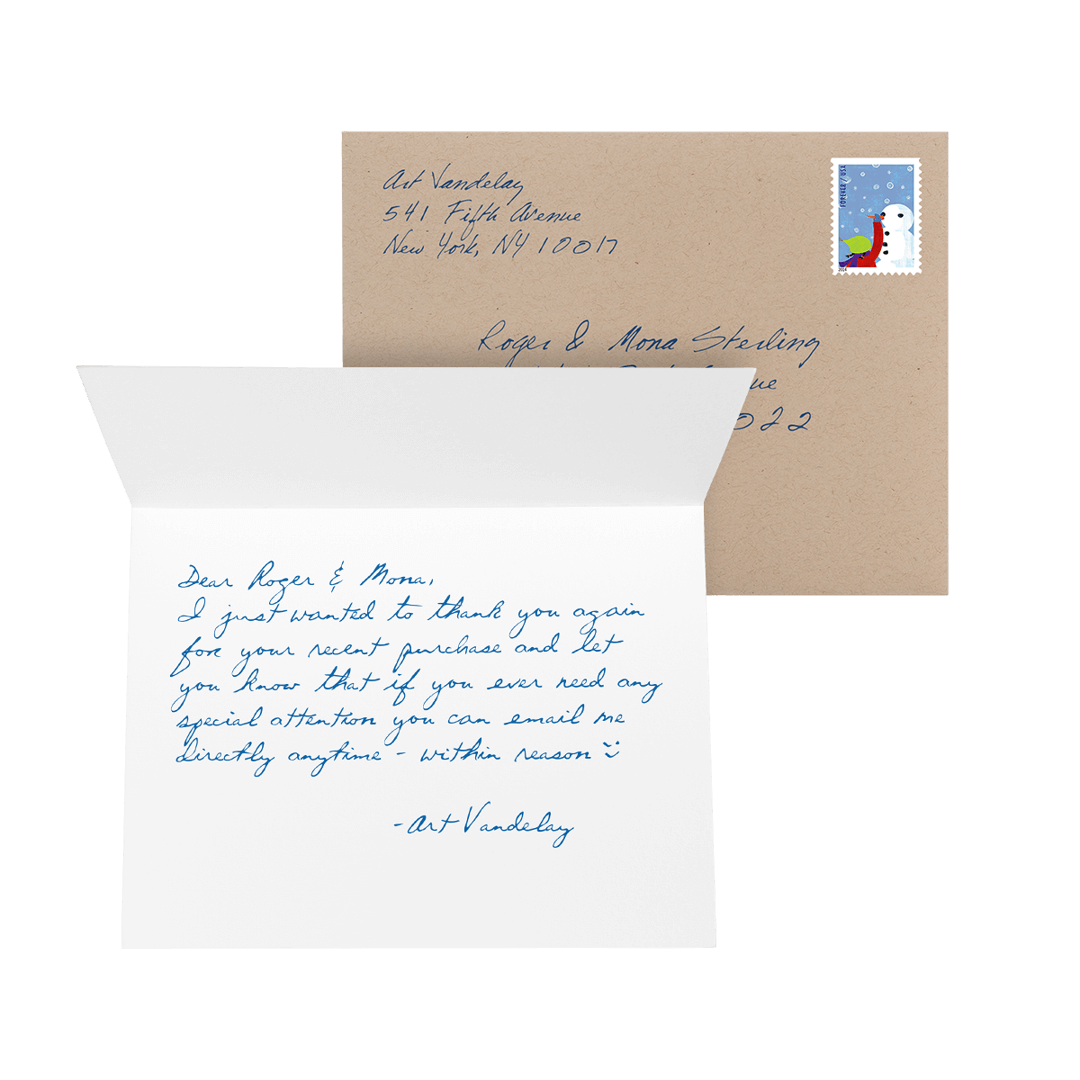 Art Vandelay
541 Fifth Avenue
New York, NY 10017
FOREVER / USA
2014
Roger & Mona Sterling
022
Dear Roger & Mona,
I just wanted to thank you again
for your recent purchase and let
you know that if you ever need any
special attention you can email me
directly anytime - within reason :)
-Art Vandelay